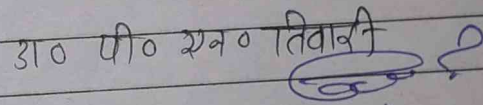 डा० पी० एन० तिवारी